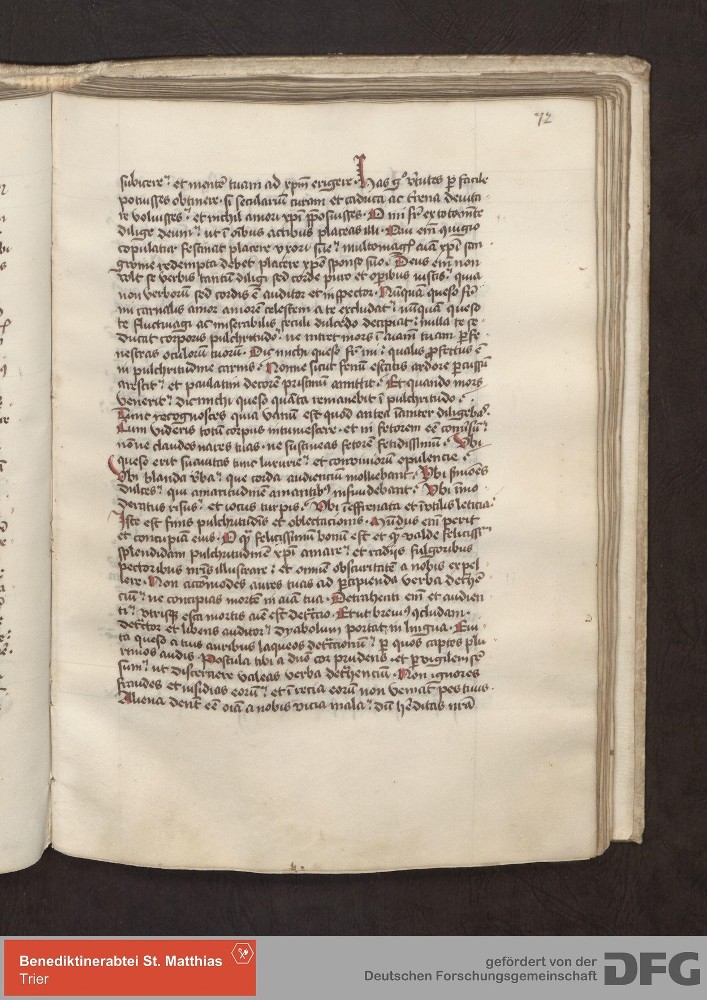 72
subicere et mentē tuam ad xpm̄ erigere. Has gͦ v̓tutes p̱ facile
potuisses obtinere si seculariū curam et caduca ac t̓rena deuita
re voluisses et nichil amori xpī p̄posuisses. O mi fr̄ ex toto corde
dilige deum ut ī oībus actibus placeas illi. Qui em̄ ꝯiugio
copulatur festinat placere vxori sue multomagꝭ aīa xpī san
gwine redempta debet placere xpō sponso suo. Deus em̄ non
vult se verbis tantū diligi sed corde puro et opibus iustis quia
non verborū sed cordis ē auditor et inspector. Nūquā queso fr̄
mi carnalis amor amorē celestem a te excludat nūquā queso
te fluctuagi ac miserabilis seculi dulcedo decipiat nulla te se
ducat corporis pulchritudo ne intret mors ī aīam tuam p̱ fe
nestras oculorū tuorū. Dic michi queso fr̄ mi qualis ꝓfectus ē
in pulchritudine carnis. Nonne sicut fenū estatis ardore p̱cussū
arescit et paulatim decorē pristinū amittit. Et quando mors
venerit dic michi queso quāta remanebit ī pulchritudo.
Tunc recognosces quia vanū est quod antea inaniter diligebas.
Cum videris totū corpus intumescere et in fetorem eē conuersū
nōne claudes nares tuas ne sustineas fetorē fetidissimū. Vbi
queso erit suauitas tunc luxurie et conuiuiorū opulencie.
Vbi blanda v̓ba que corda audienciū molliebant. Vbi s̓mōes
dulces qui amaritudinē amantibꝰ infundebant. Vbi īmo
deratus risus et iocus turpis. Vbi īeffrenata et īvtilis leticia.
Iste est finis pulchritudīs et oblectacionis. Mūdus em̄ perit
et concupīa eius. O qͣ felicissimū bonū est et qͣ valde feliciss
splendidam pulchritudinē xpī amare et radijs fulgoribus
pectoribus nr̄is illustrare et omnē obscuritatē a nobis expel
lere. Non ācōmodes aures tuas ad p̱cipienda verba det̓hē
ciū ne concipias mortē in aīa tua. Detrahenti em̄ et audien
ti vtrisqꝫ esca mortis aīe est detᵃctio. Et ut breuiꝰ ꝯcludam
detᵃctor et libens auditor dyabolum portat in lingua. Eui
ta queso a tuis auribus laqueos detᵃctionū p̱ quos captos plu
rimos audis. Postula tibi a dnō cor prudens et p̱vigilem sē
sum ut discernere valeas verba det̓henciū. Non ignores
fraudes et īsidias eorū et ī recia eorū non veniat pes tuus.
Aliena debēt eē oīa a nobis vicia mala dū h̓editas nr̄a
Benediktinerabtei St. Matthias
Trier
gefördert von der
Deutschen Forschungsgemeinschaft
DFG